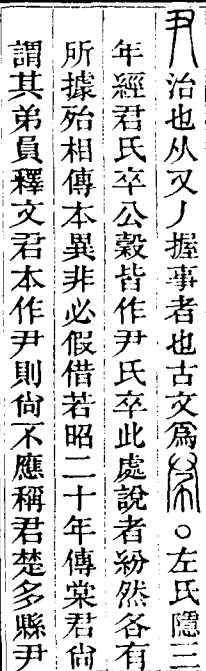 尹治也从又丿握事者也古文爲𢁼○左氏隱三
年經君氏卒公穀皆作尹氏卒此處說者紛然各有
所據殆相傳本異非必假借若昭二十年傳棠君尙
謂其弟員釋文君本作尹則尙不應稱君楚多縣尹